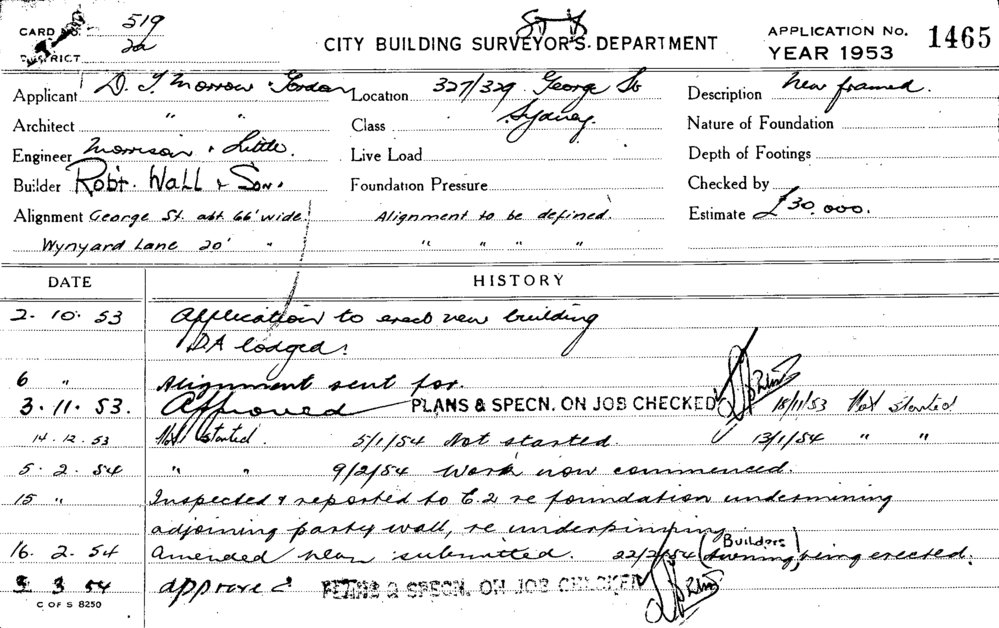 CARD No. 519
DISTRICT 2a
CITY BUILDING SURVEYOR'S DEPARTMENT
APPLICATION No. 1465
YEAR 1953
Applicant D. T. Morrow & Gordon Location 327/329 George St Description New framed.
Architect " " Sydney.
Class Nature of Foundation
Engineer Morrison & Little. Live Load Depth of Footings
Builder Robt. Wall & Son. Foundation Pressure Checked by
Alignment George St. abt 66' wide. Alignment to be defined. Estimate £30,000.
Wynyard Lane 20' " " " " "
DATE HISTORY
2. 10. 53 Application to erect new building
DA lodged.
6 " Alignment sent for.
3. 11. 53. Approved PLANS & SPECN. ON JOB CHECKED 18/11/53 Not started
14. 12. 53 Not started. 5/1/54 Not started. 13/1/54 " "
5. 2. 54 " " 9/2/54 Work now commenced.
15 " Inspected & reported to E.2 re foundation undermining
adjoining party wall, re underpinning.
16. 2. 54 Amended plan submitted. 22/2/54 (Builders Awning) being erected.
3 3 54 approved PLANS & SPECN. ON JOB CHECKED
C OF S 8250